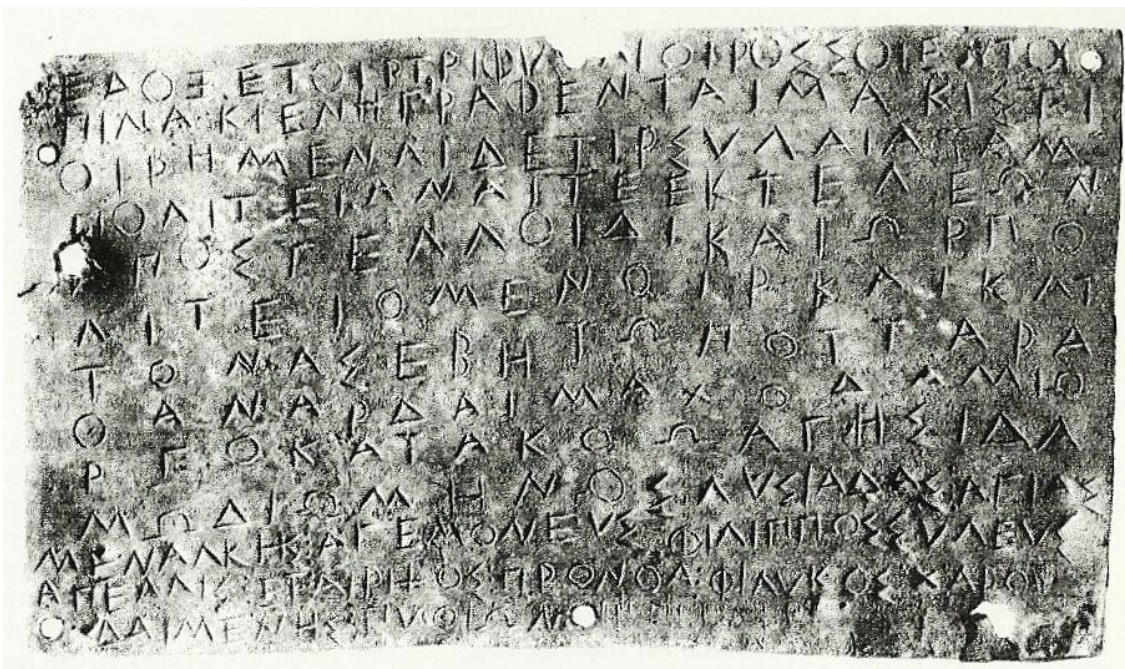 ΕΔΟΞΕΤΟΙΡΤΡΙΦΥΛΙΟΙΡΟΣΣΟΙΕΝΤΟΙ
ΠΙΝΑΚΙΕΝΗΓΡΑΦΕΝΤΑΙΜΑΚΙΣΤΙ
ΟΙΡΗΜΕΝΑΙΔΕΤΙΡΣΥΛΑΙΑΤΑΜ
ΠΟΛΙΤΕΙΑΝΑΙΤΕΕΚΤΕΛΕΩΝ
ΑΠΟΣΤΕΛΛΟΙΔΙΚΑΙΩΡΠΟ
ΛΙΤΕΙΟΜΕΝΟΙΡΚΑΙΚΑΤ
ΤΟΝΑΣΕΒΗΤΩΠΟΤΤΑΡΑ
ΘΑΝΑΡΔΑΙΜΑΧΟΔΑΜΙΟ
ΡΓΟΚΑΤΑΚΟΩΑΓΗΣΙΔΑ
ΜΩΔΙΩΜΗΝΟΣΛΥΣΙΑΔΑΣΑΓΙΑΣ
ΜΕΝΑΛΚΗΣΑΓΕΜΟΝΕΥΣΦΙΛΙΠΠΟΣΣΥΛΕΥΣ
ΑΠΕΛΛΙΣΕΤΑΙΡΙΧΟΣΠΡΟΝΟΑΦΙΛΥΚΟΣΧΑΡΟΨ
ΔΑΙΜΕΝΗΣΠΥΘΙΩΝ